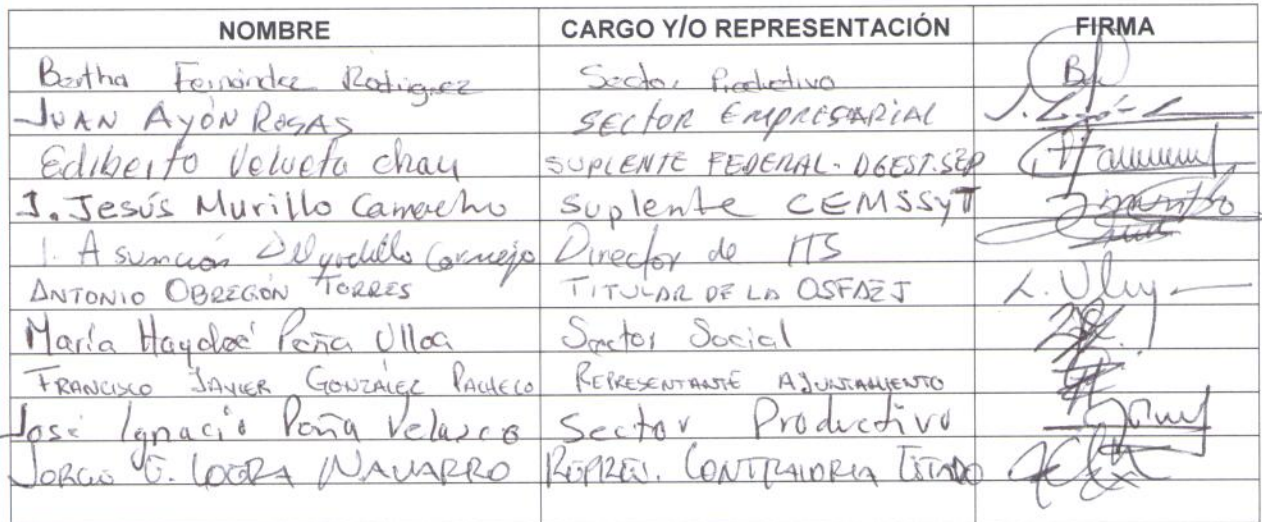 NOMBRE CARGO Y/O REPRESENTACIÓN FIRMA
Bertha Fernández Rodriguez Sector Productivo
JUAN AYÓN ROSAS SECTOR EMPRESARIAL
Ediberto Velueta Chau SUPLENTE FEDERAL - DGEST.SEP
J. Jesús Murillo Camacho Suplente CEMSSyT
Asunción Delgadillo Cornejo Director de ITS
ANTONIO OBREGÓN TORRES TITULAR DE LA OSFAEJ
María Haydeé Peña Ulloa Sector Social
FRANCISCO JAVIER GONZÁLEZ PACHECO REPRESENTANTE AJUNTAMIENTO
José Ignacio Peña Velasco Sector Productivo
JORGE NAVARRO REPRES. CONTRALORIA ESTADO